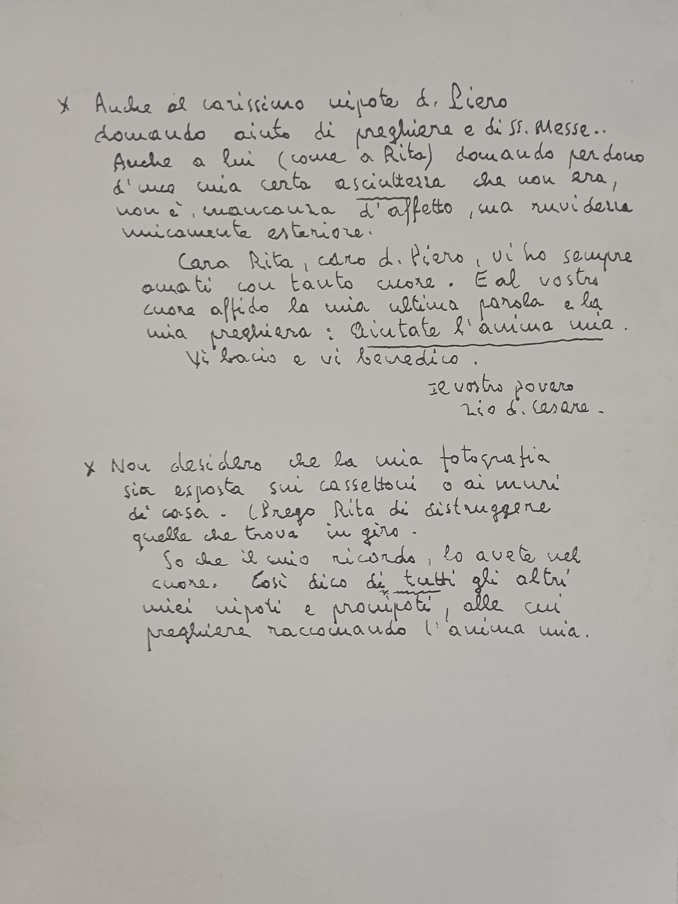 x Anche al carissimo nipote d. Piero
domando aiuto di preghiere e di SS. Messe..
Anche a lui (come a Rita) domando perdono
d'una mia certa asciuttezza che non era,
non è, mancanza d'affetto, ma ruvidezza
unicamente esteriore.
Cara Rita, caro d. Piero, vi ho sempre
amati con tanto cuore. E al vostro
cuore affido la mia ultima parola e la
mia preghiera: aiutate l'anima mia.
Vi bacio e vi benedico.
Il vostro povero
zio d. Cesare.
x Non desidero che la mia fotografia
sia esposta sui cassettoni o ai muri
di casa. (Prego Rita di distruggere
quelle che trova in giro.
So che il mio ricordo, lo avete nel
cuore. Così dico di tutti gli altri
miei nipoti e pronipoti, alle cui
preghiere raccomando l'anima mia.